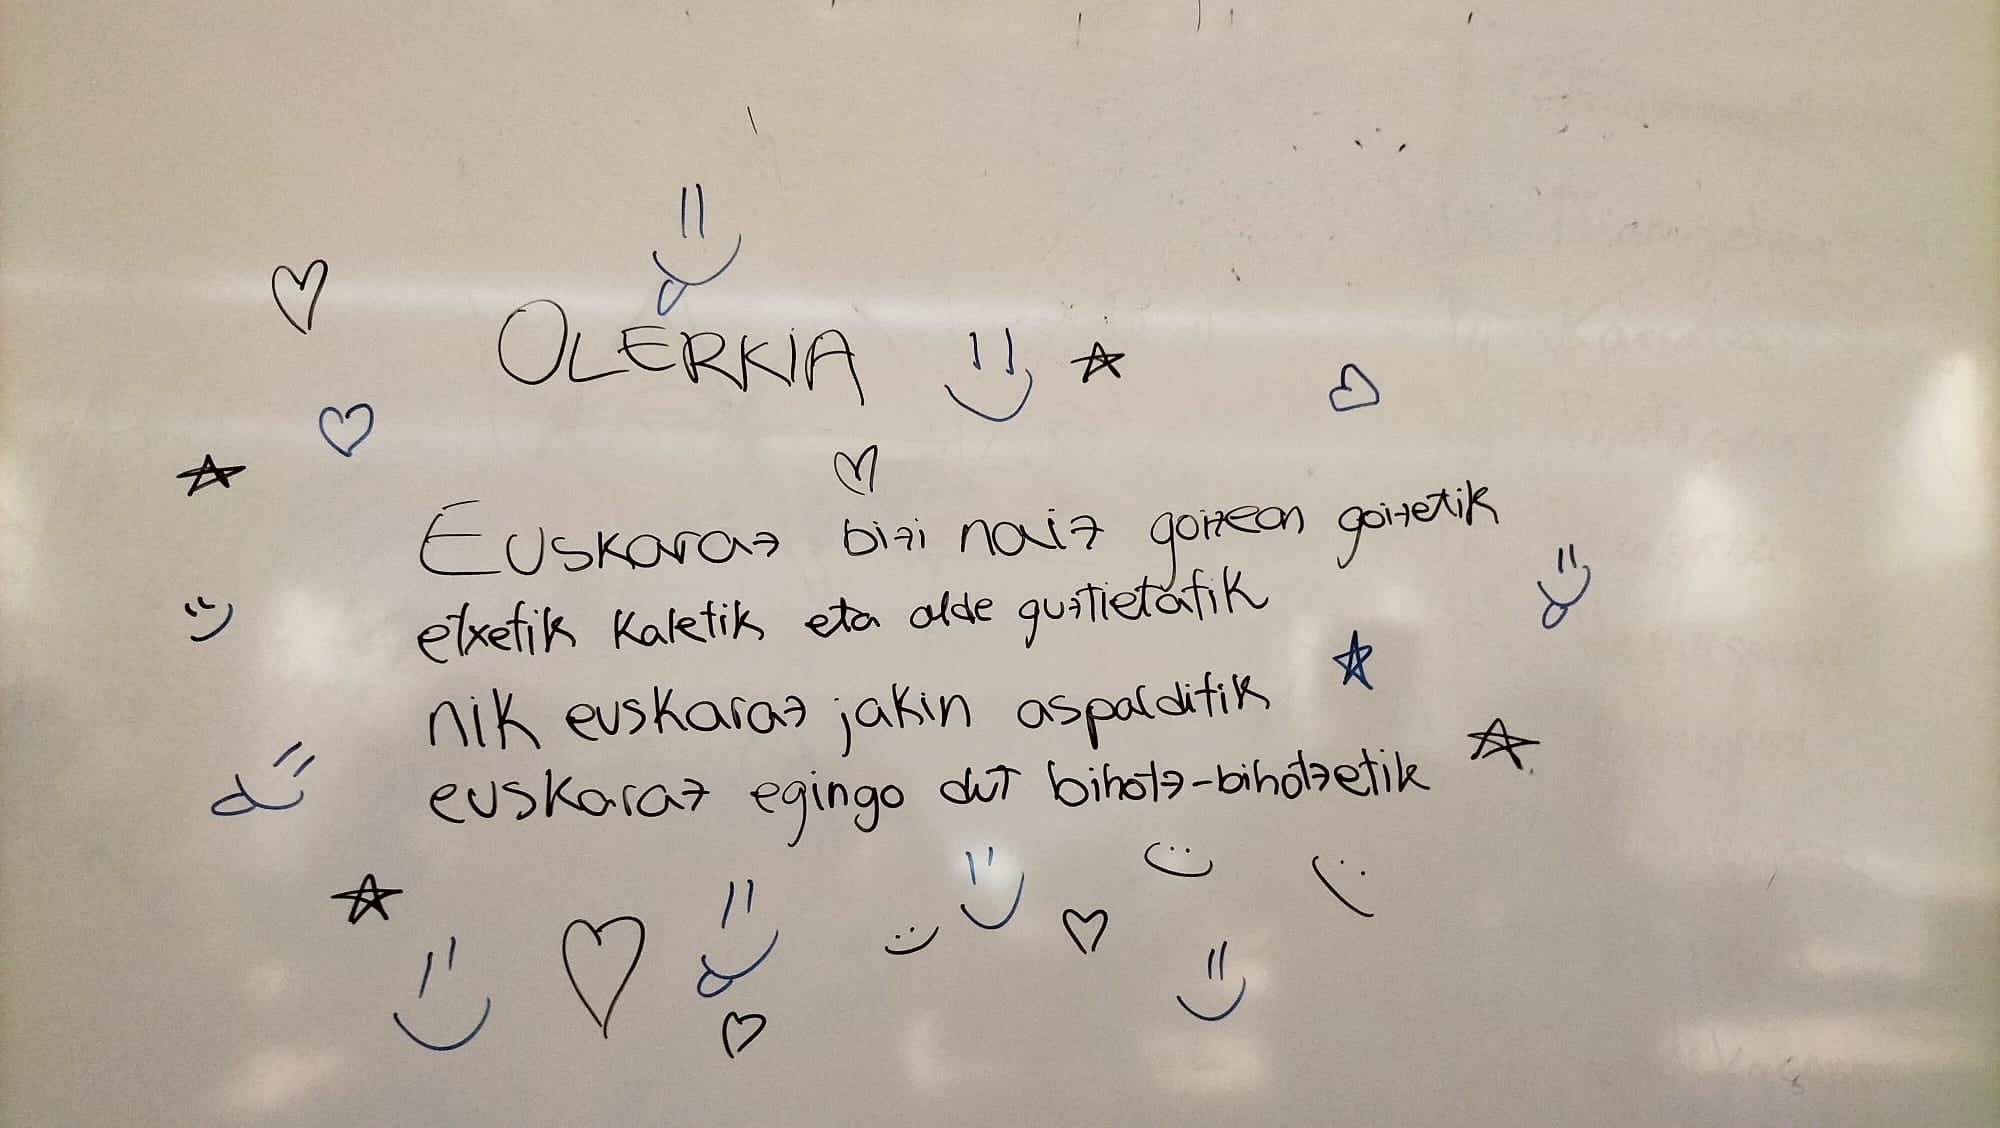 OLERKIA
Euskaraz bizi naiz goizean goizetik
etxetik kaletik eta alde guztietatik
nik euskaraz jakin aspalditik
euskaraz egingo dut bihotz-bihotzetik